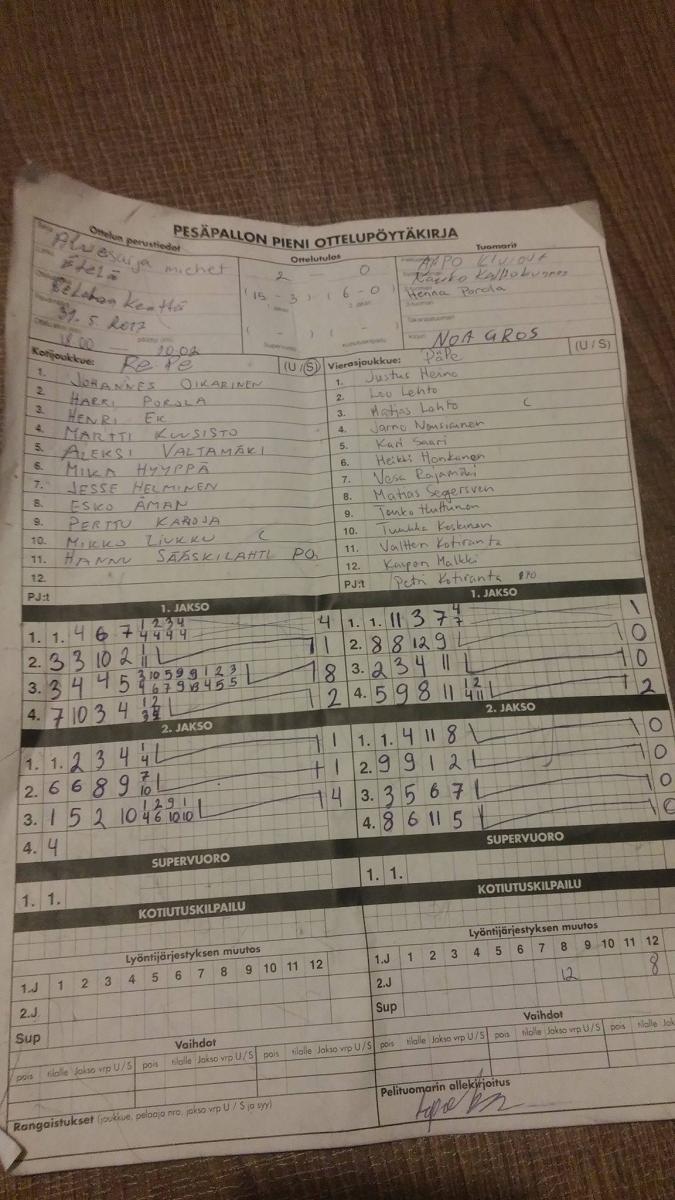 PESÄPALLON PIENI OTTELUPÖYTÄKIRJA
Ottelun perustiedot
Ottelutulos
Tuomarit
Aluesarja miehet
Etelä
kenttä
31.5.2017
18.00
20.02
2 0
(15 - 3) (6 - 0)
( - ) ( - )
Henna Porola
NOA GROS
Kotijoukkue: RePe (U / S)
1. JOHANNES OIKARINEN
2. HARRI POROLA
3. HENRI EK
4. MARTTI KUUSISTO
5. ALEKSI VALTAMÄKI
6. MIKA HYYPPÄ
7. JESSE HELMINEN
8. ESKO ÄMAN
9. PERTTU KAROJA
10. MIKKO LIUKKU C
11. HANNU SÄÄSKILAHTI PO.
12.
PJ:t
Vierasjoukkue: PäPe (U / S)
1. Justus Herno
2. Leo Lehto
3. Matias Lahto C
4. Jarno Nousiainen
5. Kari Saari
6. Heikki Honkanen
7. Vesa Rajamäki
8. Matias Segersven
9. Jouko Huttunen
10. Tuukka Koskinen
11. Valtteri Kotiranta
12. Kaspon Malkki
PJ:t Petri Kotiranta
1. JAKSO
1. 1. 4 6 7 1 2 3 4 4
4 4 4 4
2. 3 3 10 2 1 1
11
3. 3 4 4 5 3 10 5 9 9 1 2 3 8
4 6 7 9 10 4 5 5
4. 7 10 3 4 1 2 2
2. JAKSO
1. 1. 2 3 4 1 1
4
2. 6 6 8 9 7 1
10
3. 1 5 2 10 1 2 9 1 4
4 6 10 10
4. 4
SUPERVUORO
1. 1.
KOTIUTUSKILPAILU
1. JAKSO
1. 1. 11 3 7 4 1
7
2. 8 8 12 9 0
3. 2 3 4 11 0
4. 5 9 8 11 1 2 2
4 11
2. JAKSO
1. 1. 4 11 8 0
2. 9 9 1 2 0
3. 3 5 6 7 0
4. 8 6 11 5 0
SUPERVUORO
1. 1.
KOTIUTUSKILPAILU
Lyöntijärjestyksen muutos
1.J 1 2 3 4 5 6 7 8 9 10 11 12
2.J.
Sup
Vaihdot
pois tilalle Jakso vrp U / S pois tilalle Jakso vrp U / S pois tilalle Jakso vrp U / S
Rangaistukset (joukkue, pelaaja nro, jakso vrp U / S ja syy)
Lyöntijärjestyksen muutos
1.J 1 2 3 4 5 6 7 8 9 10 11 12
2.J 12 8
Sup
Vaihdot
pois tilalle Jakso vrp U / S pois tilalle Jakso vrp U / S pois tilalle
Pelituomarin allekirjoitus